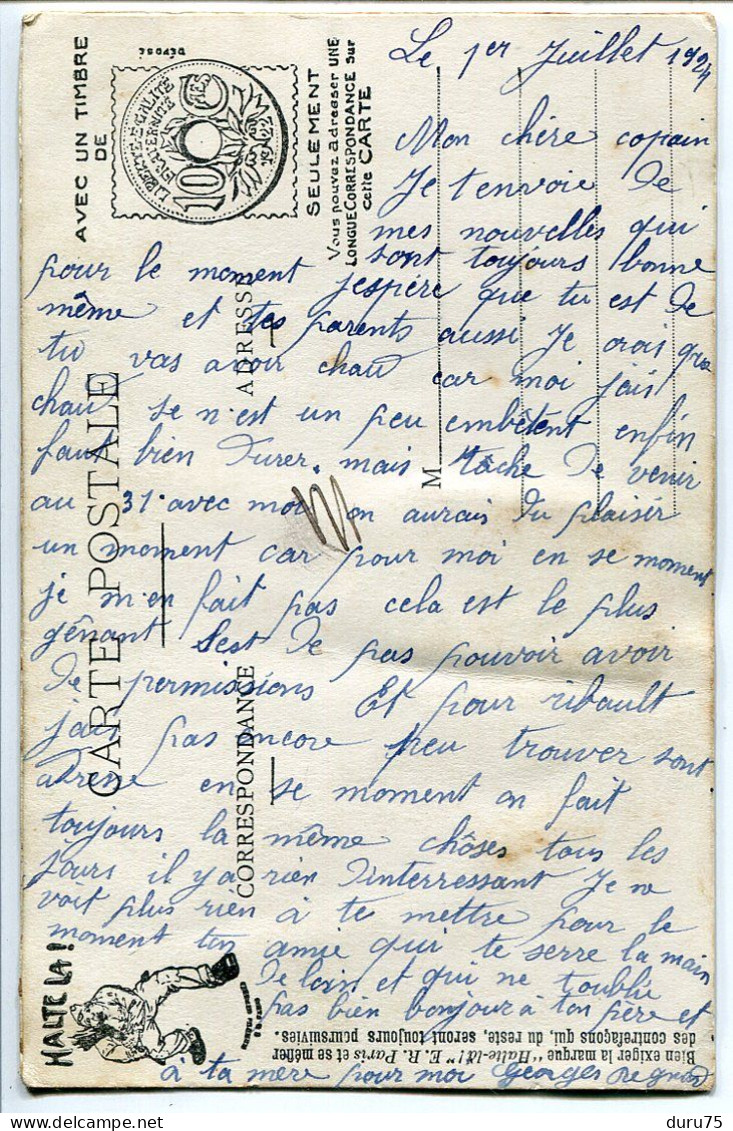 Le 1er Juillet 1924
Mon chère copain
Je t'envoie de
mes nouvelles qui
sont toujours bonne
pour le moment j'espère que tu est de
même et tes parents aussi. Je crois que
tu vas avoir chaud car moi j'ais
chaud se n'est un peu embêtent enfin
faut bien durer. mais tâche de venir
au 31. avec moi on aurais du plaisir
un moment car pour moi en se moment
je m'en fait pas cela est le plus
gênant sest de pas pouvoir avoir
de permissions Et pour ribault
j'ais pas encore peu trouver sont
adresse en se moment on fait
toujours la même chôses tous les
jours il y a rien d'interressant Je ne
voit plus rien à te mettre pour le
moment ton amie qui te serre la main
de loin et qui ne t'oublie
pas bien bonjour à ton père et
à ta mère pour moi Georges
AVEC UN TIMBRE
DE
DÉPOSÉ
LIBERTÉ-EGALITÉ
FRATERNITÉ
10 CMES
SEULEMENT
Vous pouvez adresser UNE
LONGUE CORRESPONDANCE sur
cette CARTE
CARTE POSTALE
CORRESPONDANCE
ADRESSE
M
HALTE LA!
Bien exiger la marque "Halte-là! E. R. Paris et se méfier
des contrefaçons qui, du reste, seront toujours poursuivies.
Tahiti numérisation pour delcampe.net
duru75